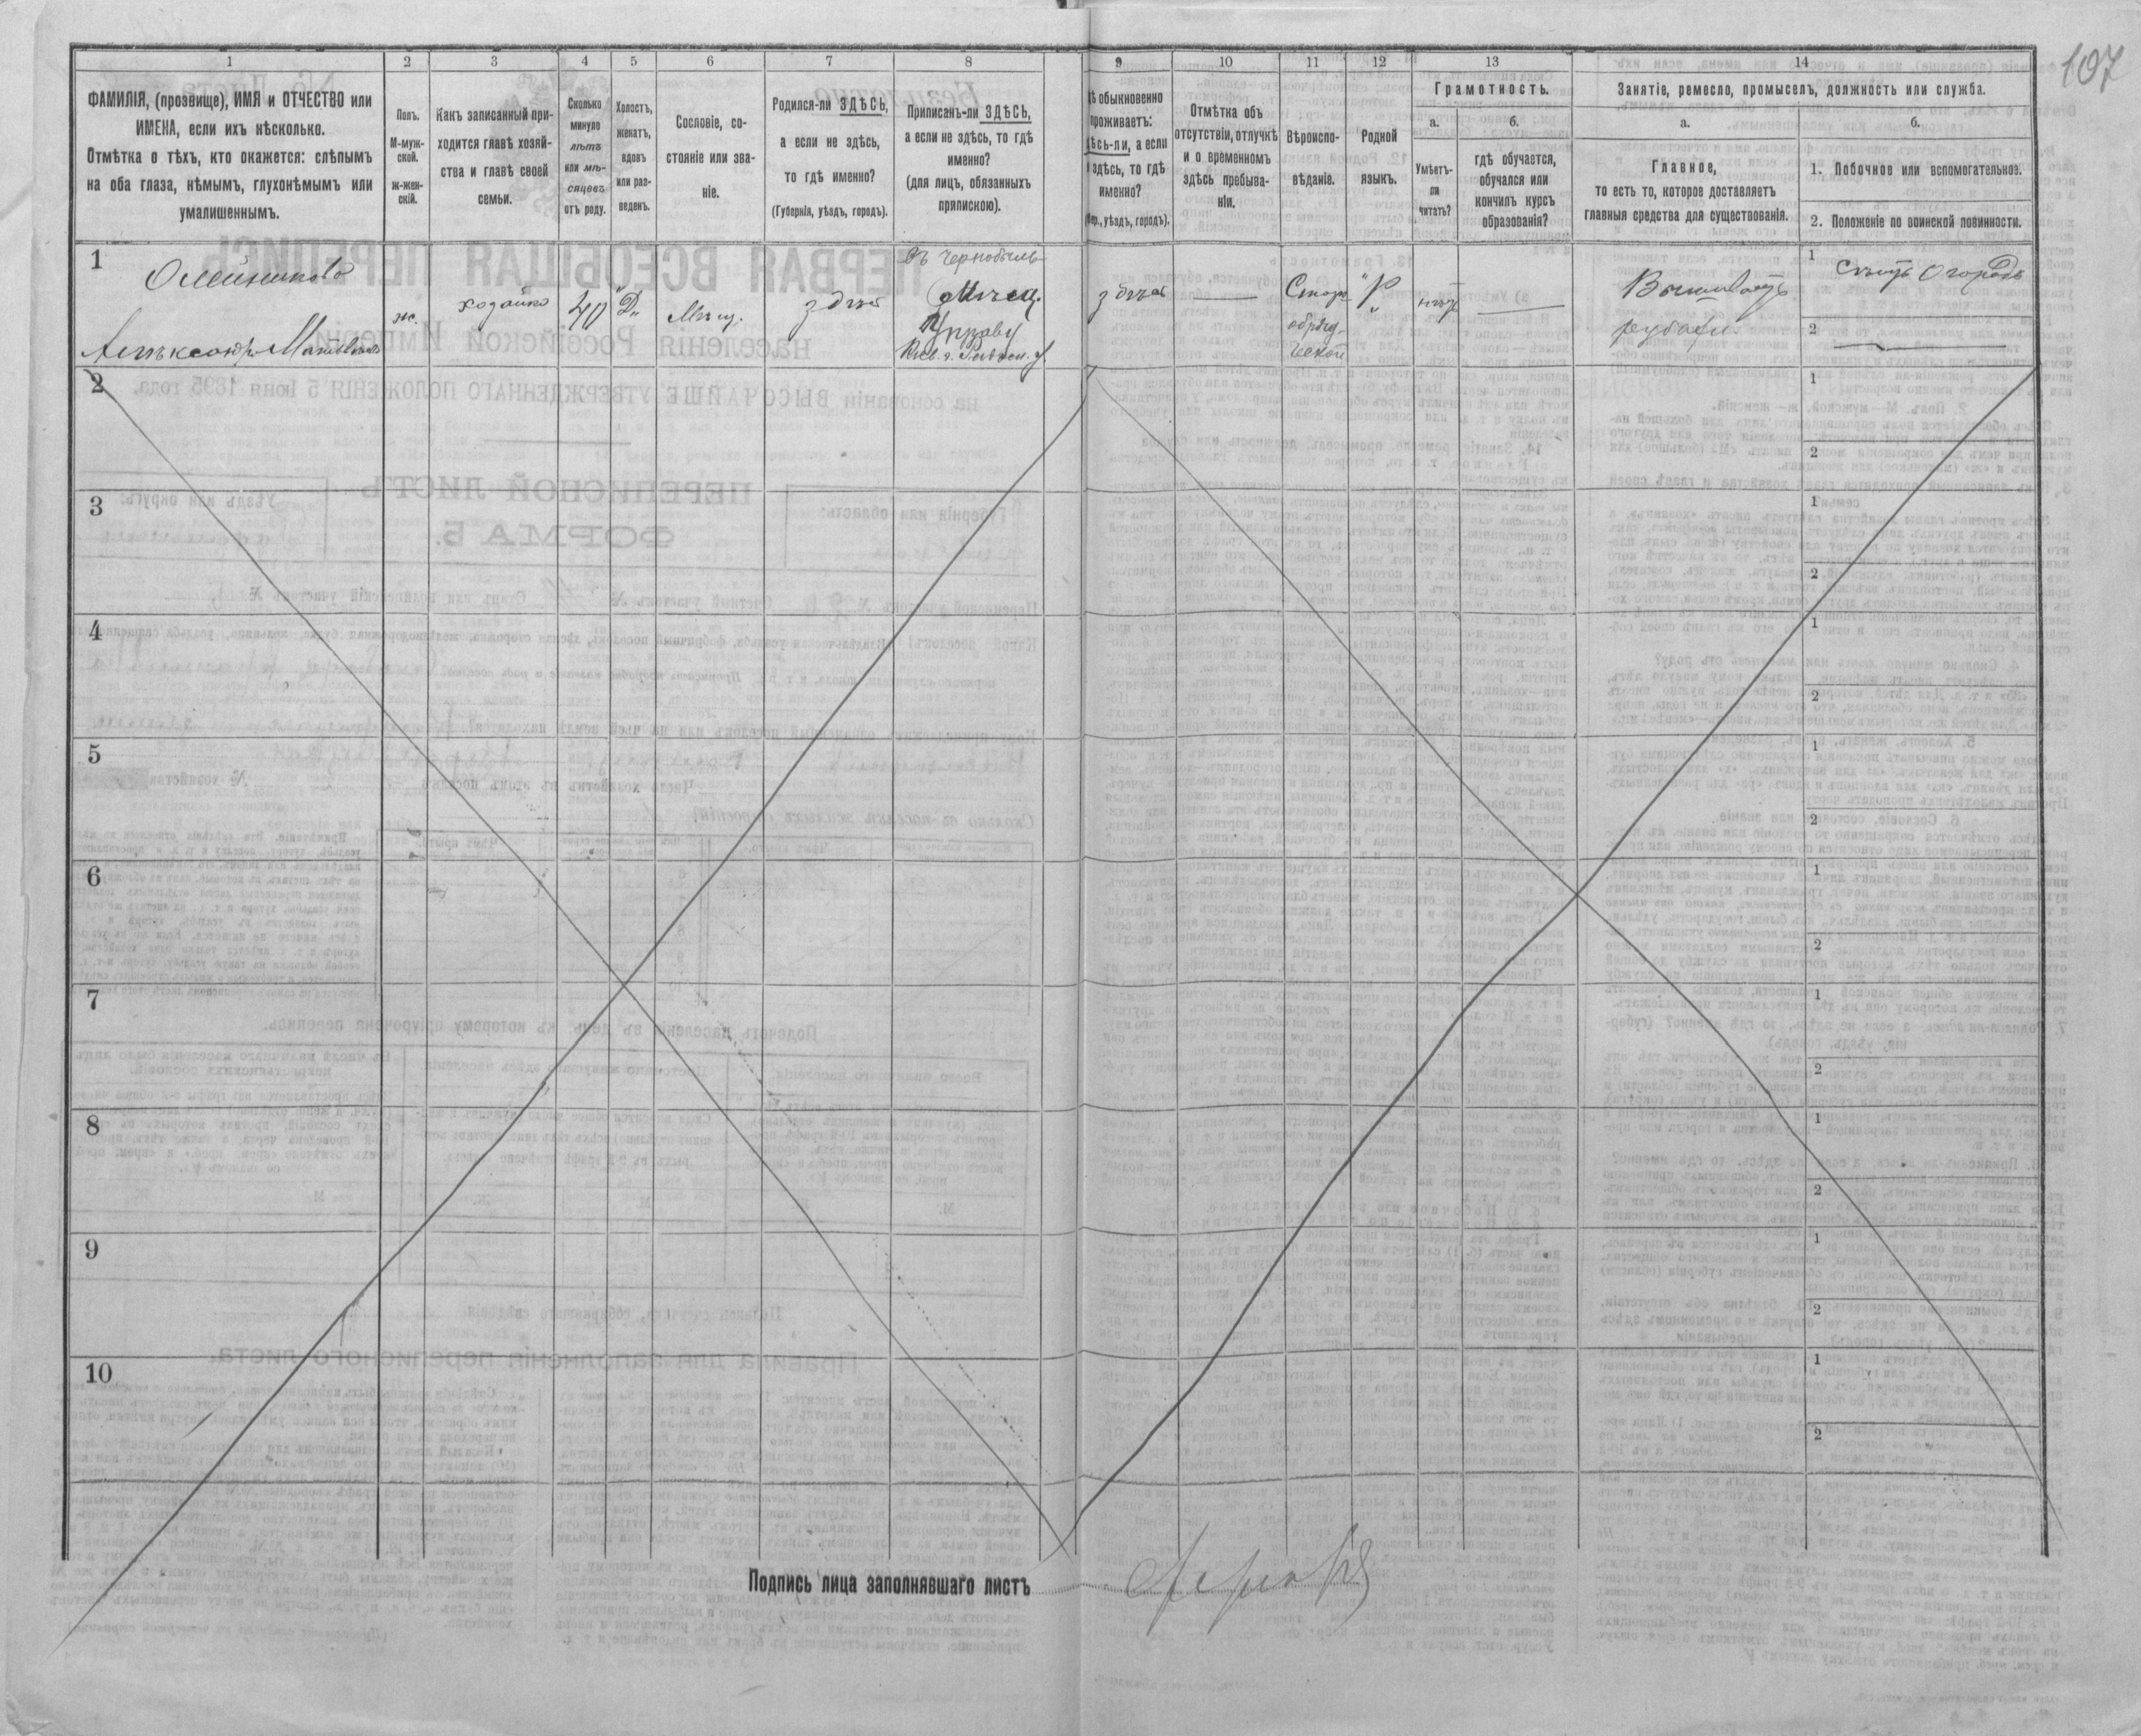 107
1 2 3 4 5 6 7 8 9 10 11 12 13 14
ФАМИЛІЯ, (прозвище), ИМЯ и ОТЧЕСТВО или
ИМЕНА, если ихъ нѣсколько.
Отмѣтка о тѣхъ, кто окажется: слѣпымъ
на оба глаза, нѣмымъ, глухонѣмымъ или
умалишеннымъ.
Полъ.
М-муж-
ской.
ж-жен-
скій.
Какъ записанный при-
ходится главѣ хозяй-
ства и главѣ своей
семьи.
Сколько
минуло
лѣтъ
или мѣ-
сяцевъ
отъ роду.
Холостъ,
женатъ,
вдовъ
или раз-
веденъ.
Сословіе, со-
стояніе или зва-
ніе.
Родился-ли ЗДѢСЬ,
а если не здѣсь,
то гдѣ именно?
(Губернія, уѣздъ, городъ).
Приписанъ-ли ЗДѢСЬ,
а если не здѣсь, то гдѣ
именно?
(для лицъ, обязанныхъ
припискою).
ѣ обыкновенно
проживаетъ:
ѣсь-ли, а если
здѣсь, то гдѣ
именно?
уѣздъ, городъ).
Отмѣтка объ
отсутствіи, отлучкѣ
и о временномъ
здѣсь пребыва-
ніи.
Вѣроиспо-
вѣданіе.
Родной
языкъ.
Грамотность.
а.
Умѣетъ-
ли
читать?
б.
гдѣ обучается,
обучался или
кончилъ курсъ
образованія?
Занятіе, ремесло, промыселъ, должность или служба.
а.
Главное,
то есть то, которое доставляетъ
главныя средства для существованія.
б.
1. Побочное или вспомогательное.
2. Положеніе по воинской повинности.
1
Олейникова
ж.
хозяйка
40
Д
Мѣщ.
здѣсь
Въ Чернобыль
Мѣщ.
Управу
здѣсь
Старо
обряд
ческой
Р
нѣтъ
Вышиваетъ
рубахи
1
огородъ
2
2
1
2
3
1
2
4
1
2
5
1
2
6
1
2
7
1
2
8
1
2
9
1
2
10
1
2
Подпись лица заполнявшаго листъ